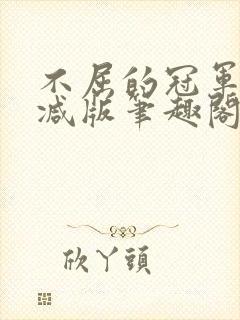 不屈的冠军
减版笔趣阁
欣丫頭